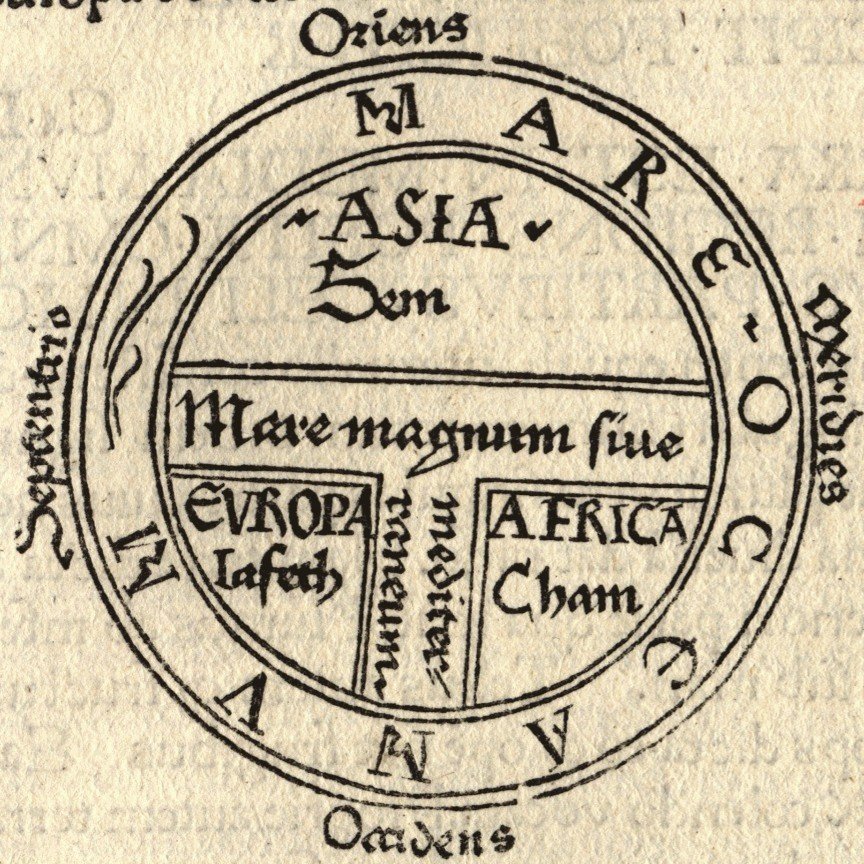 Oriens
MARE OCEANVM
Septentrio
Meridies
ASIA
Sem
Mare magnum siue
mediter/
raneum
EVROPA
Iafeth
AFRICA
Cham
Occidens